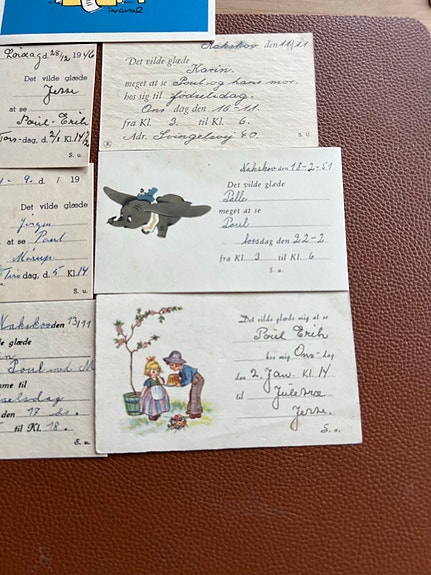 Lørdag d. 28/12 1946
Det vilde glæde
Jesse
at se
Poul-Erik
Tors-dag, d. 2/1 Kl. 14 1/2
S. u.
Nakskov den 11/11
Det vilde glæde
Karin.
meget at se Poul og hans mor.
hos sig til fødselsdag.
Ons dag den 16-11.
fra Kl. 3. til Kl. 6.
Adr. Svingelsvej 40.
S. U.
9. d. 19
Det vilde glæde
Jørgen
at se Poul
Tirs dag, d. 5 Kl. 14
S. u.
Nakskov den 18-2-51
Det vilde glæde
Palle
meget at se
Poul
torsdag den 22-2
fra Kl. 3 til Kl. 6
S. u.
Nakskov den 13/11
Poul med
me til
selsdag
den 17
til Kl. 18.
S. u.
Det vilde glæde mig at se
Poul Erik
hos mig Ons-dag
den 2. Jan. Kl. 14
til Juletræ
Jesse.
S. u.